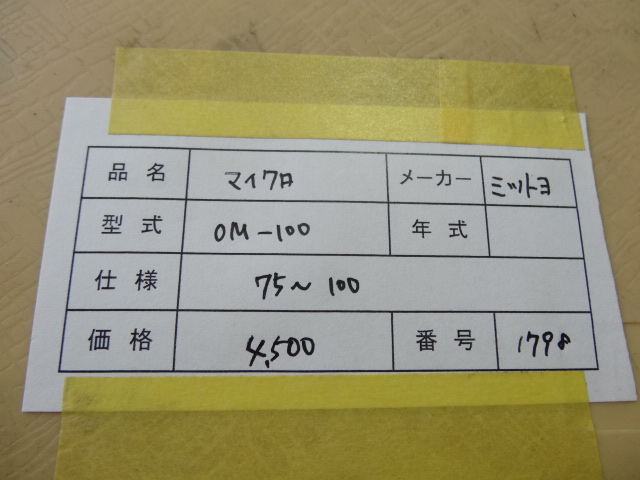 品名 マイクロ メーカー ミツトヨ
型式 OM-100 年式
仕様 75～100
価格 4,500 番号 1798